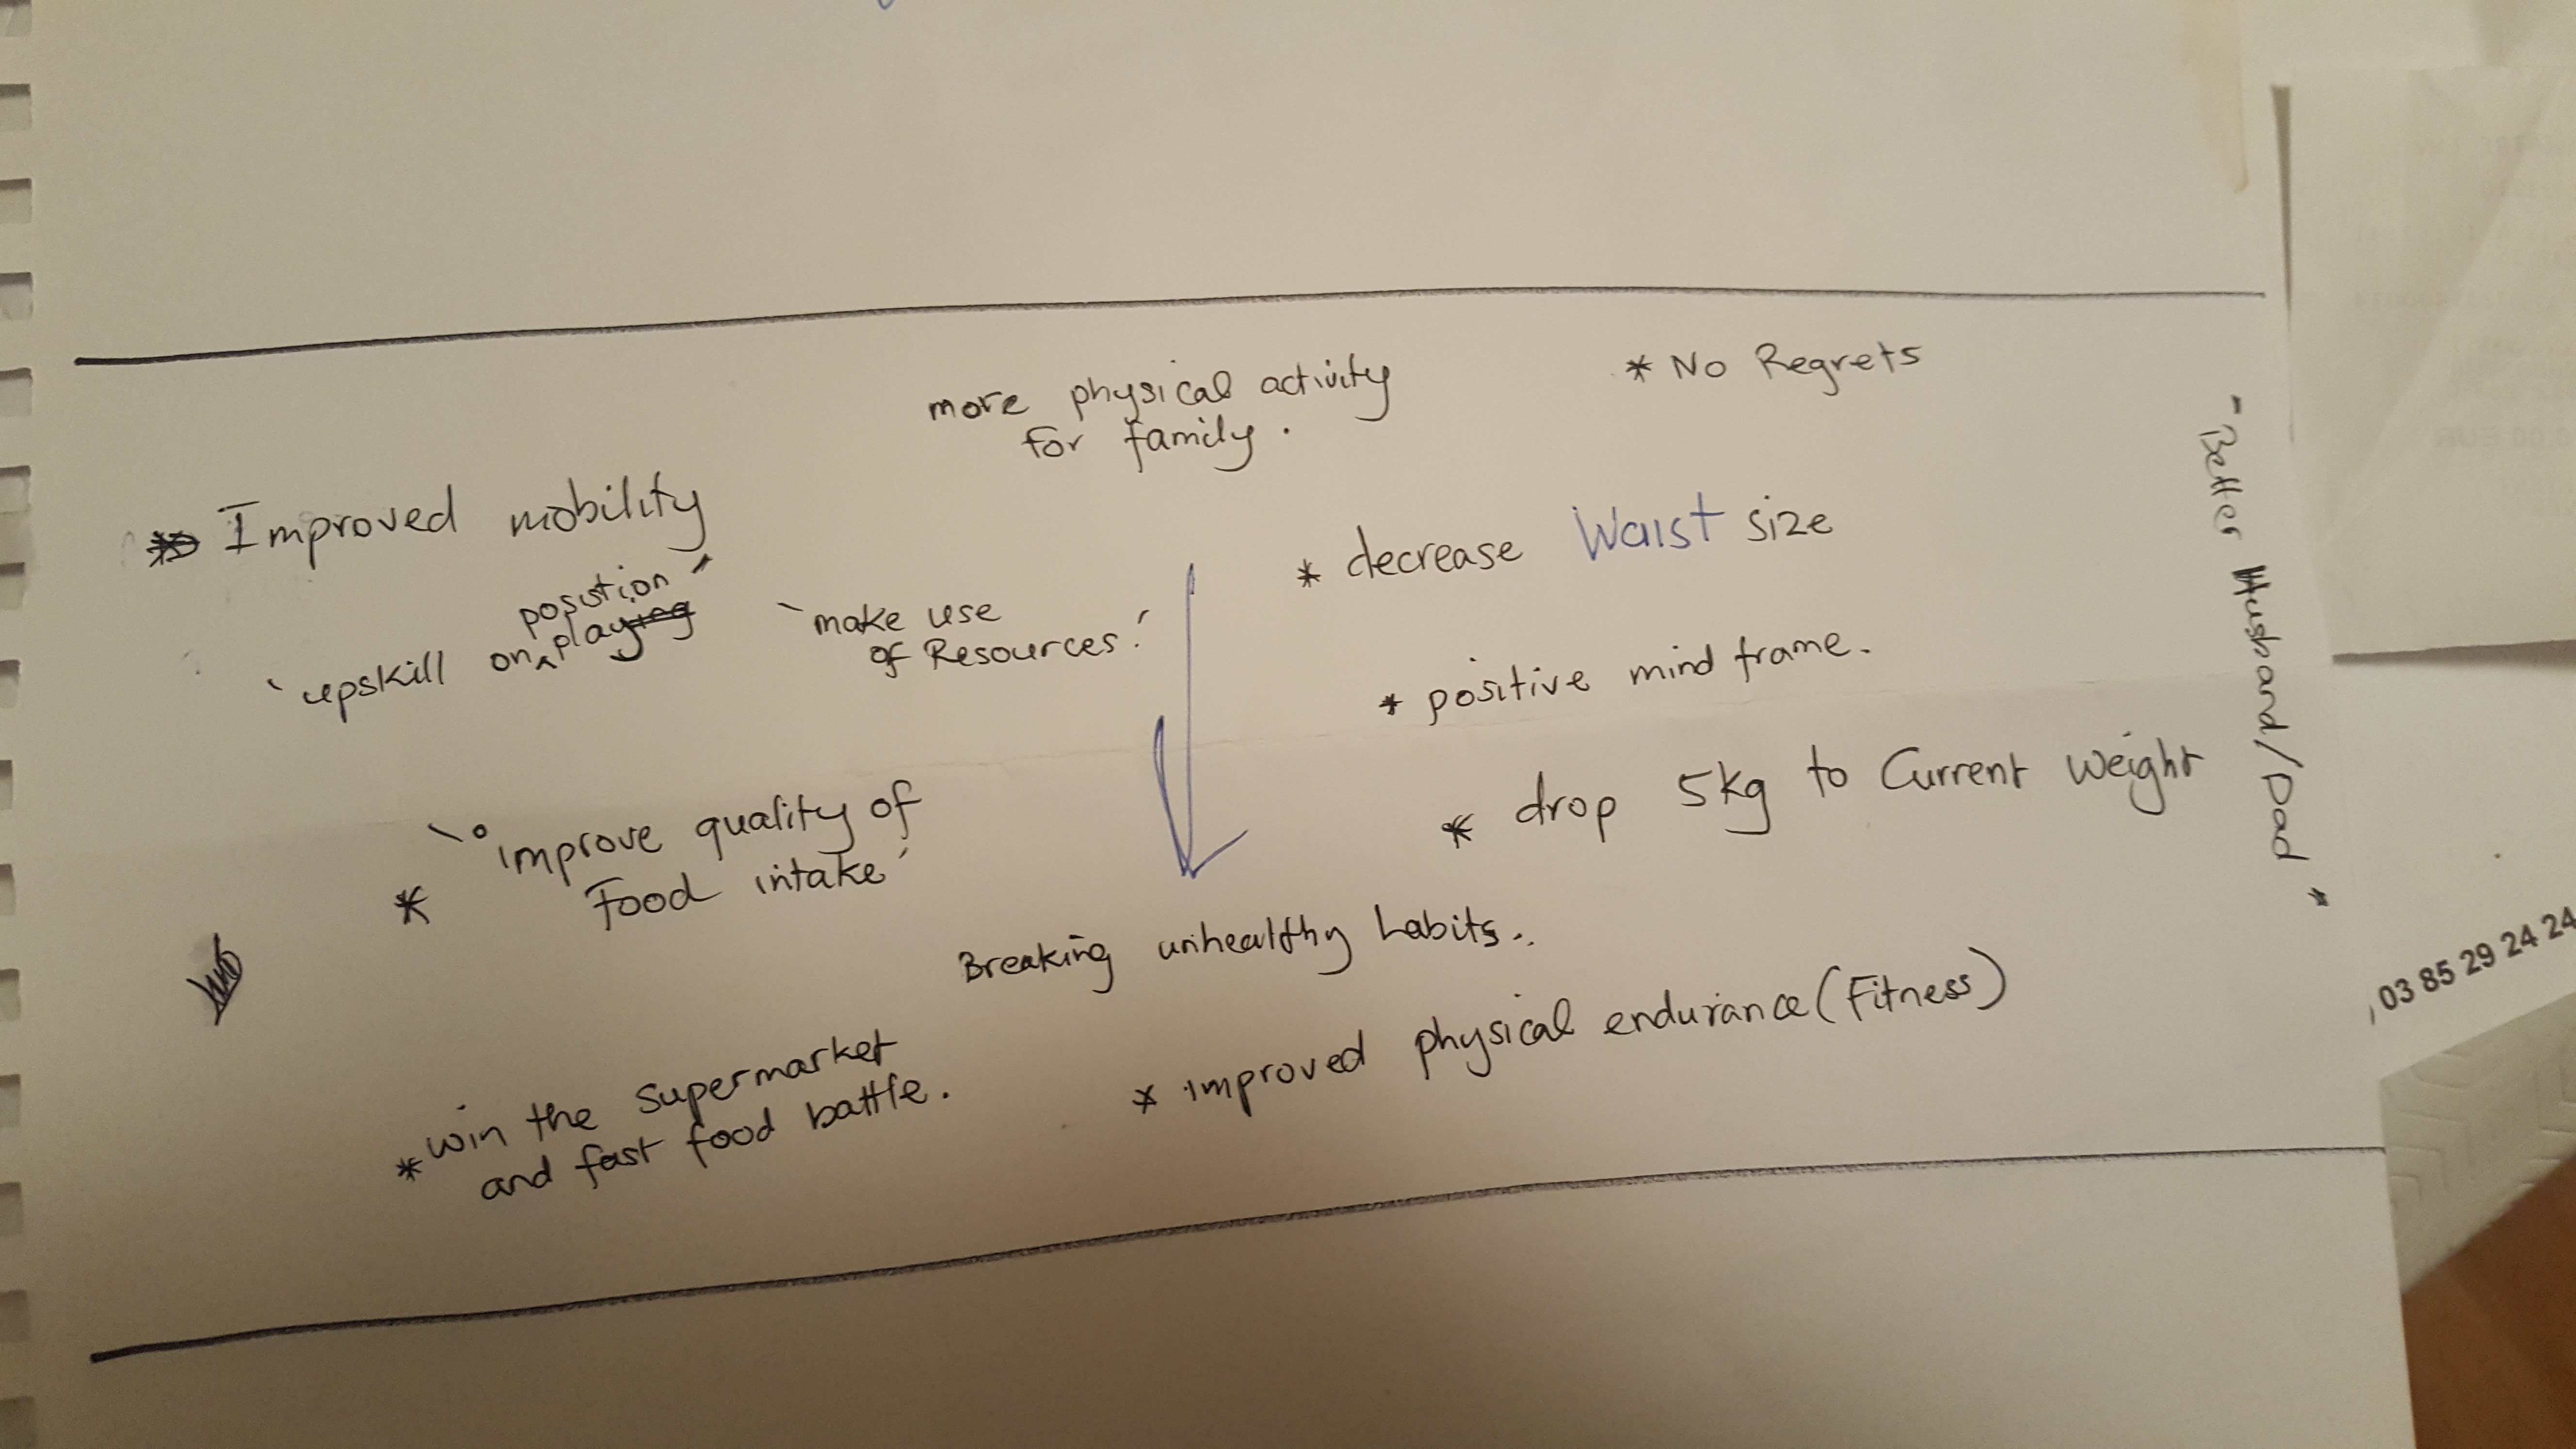 more physical activity
for family.
* No Regrets
* Improved mobility
* decrease Waist size
position
`upskill on ^ playing'
`make use
of Resources.'
* positive mind frame.
* drop 5kg to Current Weight
- Better Husband/Dad *
`improve quality of
* Food intake'
Breaking unhealthy habits..
* improved physical endurance (Fitness)
* win the supermarket
and fast food battle.
03 85 29 24 24